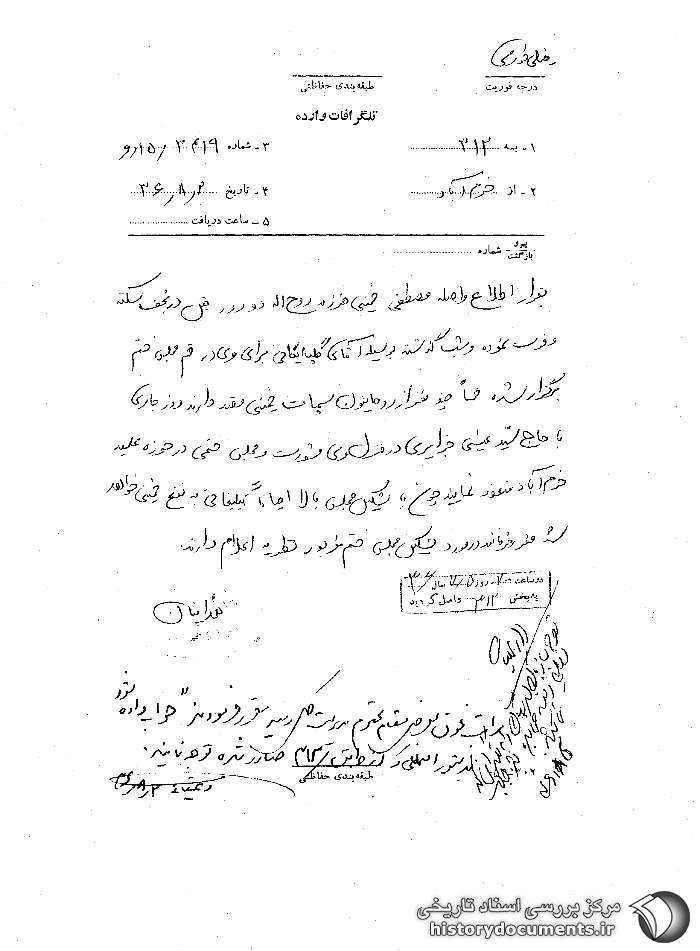 خیلی فوری
درجه فوریت
طبقه‌بندی حفاظتی
تلگرافات وارده
۱- به ۳۱۲
۳- شماره ۳۴۱۹ / ۱۵ و
۲- از خرم آباد
۴- تاریخ ۳۶/۸/۲
۵- ساعت دریافت
پیرو
بازگشت
- شماره
برابر اطلاع واصله مصطفی خمینی فرزند روح اله دو روز قبل در نجف سکته
و فوت نموده و شب گذشته بوسیله آقای گلپایگانی برای وی در قم مجلس ختم
برگزار شده ضمناً چند نفر از روحانیون سمپات خمینی قصد دارند روز جاری
با حاج سید عیسی جزایری در منزل وی مشورت و مجلس ختمی در حوزه علمیه
خرم آباد منعقد نمایند چون با تشکیل مجلس بالا احیاناً تبلیغاتی به نفع خمینی خواهد
شد مقرر فرمائید در مورد تشکیل مجلس ختم مزبور نظریه اعلام دارند.
در ساعت روز سال ۳۶
به بخش ۳۱۲ واصل گردید
مراتب فوق بعرض مقام محترم مدیریت کل رسید مقرر فرمودند جواب داده شود
صادر شده توجه نمایند.
طبقه‌بندی حفاظتی
مرکز بررسی اسناد تاریخی
historydocuments.ir